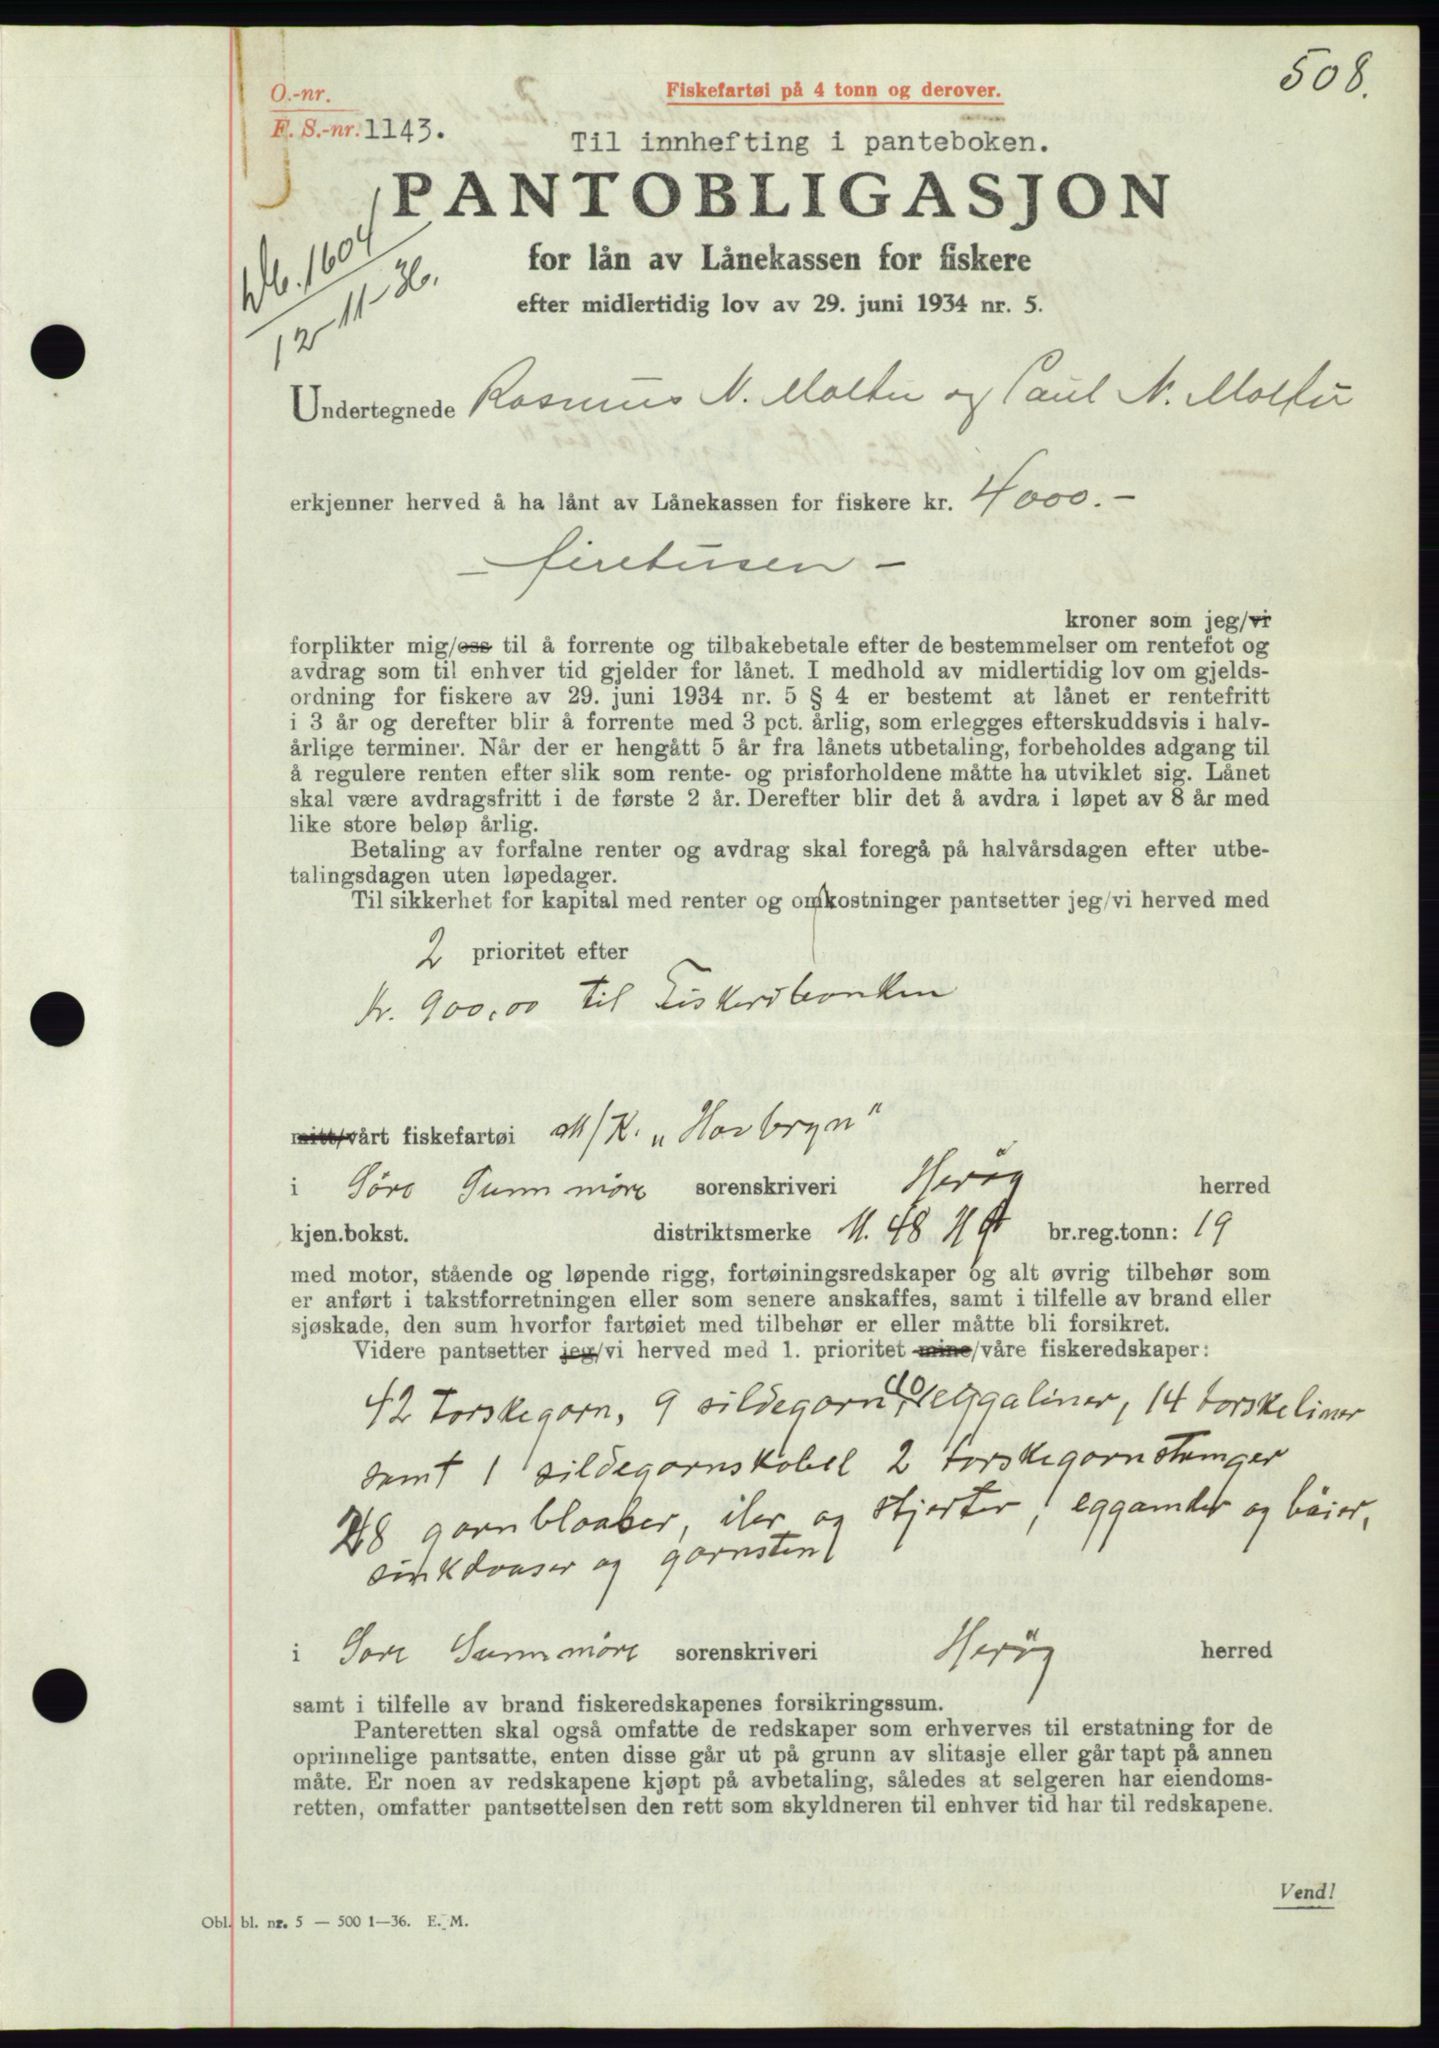 508.
O.-nr.
Fiskefartøi på 4 tonn og derover.
F. S.-nr. 1143.
Til innhefting i panteboken.
PANTOBLIGASJON
for lån av Lånekassen for fiskere
efter midlertidig lov av 29. juni 1934 nr. 5.
Db. 1604
12-11-36.
Undertegnede Rasmus N. Moltu og Paul N. Moltu
erkjenner herved å ha lånt av Lånekassen for fiskere kr. 4000.-
- firetusen -
kroner som jeg/vi
forplikter mig/oss til å forrente og tilbakebetale efter de bestemmelser om rentefot og
avdrag som til enhver tid gjelder for lånet. I medhold av midlertidig lov om gjelds-
ordning for fiskere av 29. juni 1934 nr. 5 § 4 er bestemt at lånet er rentefritt
i 3 år og derefter blir å forrente med 3 pct. årlig, som erlegges efterskuddsvis i halv-
årlige terminer. Når der er hengått 5 år fra lånets utbetaling, forbeholdes adgang til
å regulere renten efter slik som rente- og prisforholdene måtte ha utviklet sig. Lånet
skal være avdragsfritt i de første 2 år. Derefter blir det å avdra i løpet av 8 år med
like store beløp årlig.
Betaling av forfalne renter og avdrag skal foregå på halvårsdagen efter utbe-
talingsdagen uten løpedager.
Til sikkerhet for kapital med renter og omkostninger pantsetter jeg/vi herved med
2 prioritet efter
kr. 900,00 til Fiskeribanken
mitt/vårt fiskefartøi M/K. „Havbryn"
i Søre Sunnmøre sorenskriveri Herøy herred
kjen.bokst. distriktsmerke M. 48 HØ br.reg.tonn: 19
med motor, stående og løpende rigg, fortøiningsredskaper og alt øvrig tilbehør som
er anført i takstforretningen eller som senere anskaffes, samt i tilfelle av brand eller
sjøskade, den sum hvorfor fartøiet med tilbehør er eller måtte bli forsikret.
Videre pantsetter jeg/vi herved med 1. prioritet mine/våre fiskeredskaper:
42 torskegarn, 9 sildegarn, 10 eggaliner, 14 torskeliner
samt 1 sildegarnskabel 2 torskegarnstenger
28 garnblaaser, iler og stjerter, eggamder og bøier,
sinkdonser og garnsten
i Søre Sunnmøre sorenskriveri Herøy herred
samt i tilfelle av brand fiskeredskapenes forsikringssum.
Panteretten skal også omfatte de redskaper som erhverves til erstatning for de
oprinnelige pantsatte, enten disse går ut på grunn av slitasje eller går tapt på annen
måte. Er noen av redskapene kjøpt på avbetaling, således at selgeren har eiendoms-
retten, omfatter pantsettelsen den rett som skyldneren til enhver tid har til redskapene.
Vend!
Obl. bl. nr. 5 — 500 1—36. E. M.